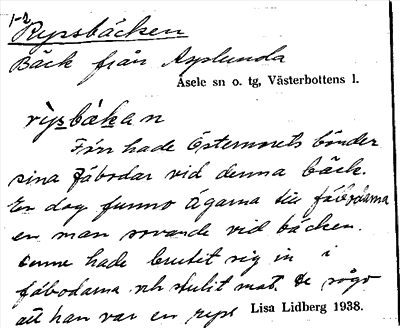 1-2
Rypsbäcken
Bäck från Asplunda
Åsele sn o. tg, Västerbottens l.
rỳpsbǻkan
Förr hade Östernorets bönder
sina fäbodar vid denna bäck.
En dag funno ägarna till fäbodarna
en man sovande vid bäcken.
denne hade brutit sig in i
fäbodarna och stulit mat. De sågo
att han var en ryss
Lisa Lidberg 1938.